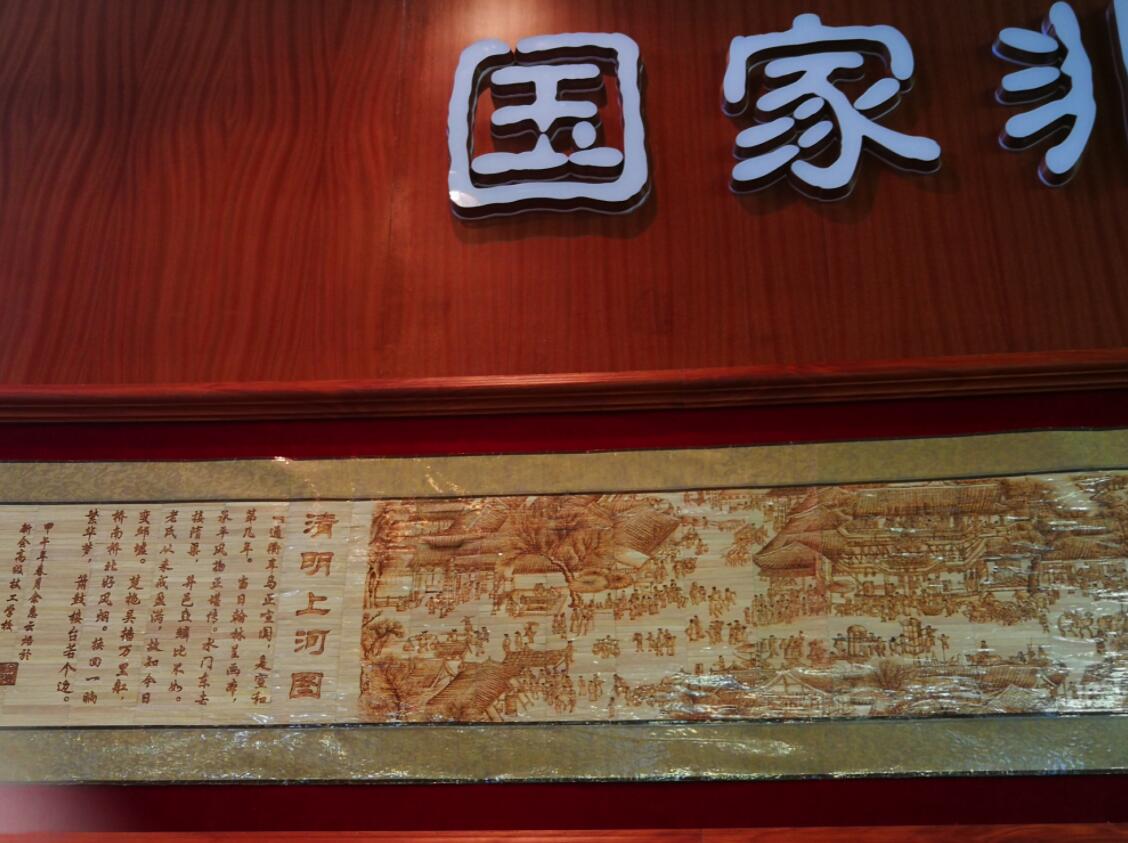 国家非
清明上河图
“通衢车马正喧阗，是宣和
第几年。当日翰林呈画本，
承平风物正堪传。水门东去
接隋渠，井邑鱼鳞比不如。
老氏从来戒盈满，故知今日
变邱墟。楚柂吴樯万里舡，
桥南桥北好风烟。唤回一晌
繁华梦，箫鼓楼台若个边。
甲午年春月余惠云烙於
新会高级技工学校